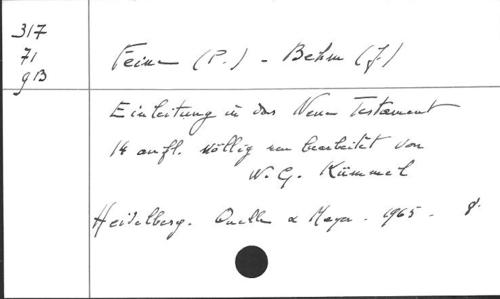 317
71
9B
Feine (P.) - Behm (J)
Einleitung in das Neue Testament
14 aufl. völlig neu bearbeitet von
W. G. Kümmel
Heidelberg. Quelle & Meyer. 1965. 8°